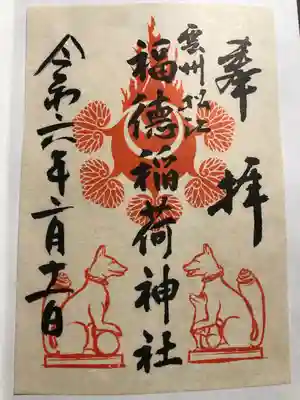 奉拝
雲州松江
福徳稲荷神社
令和六年二月十一日